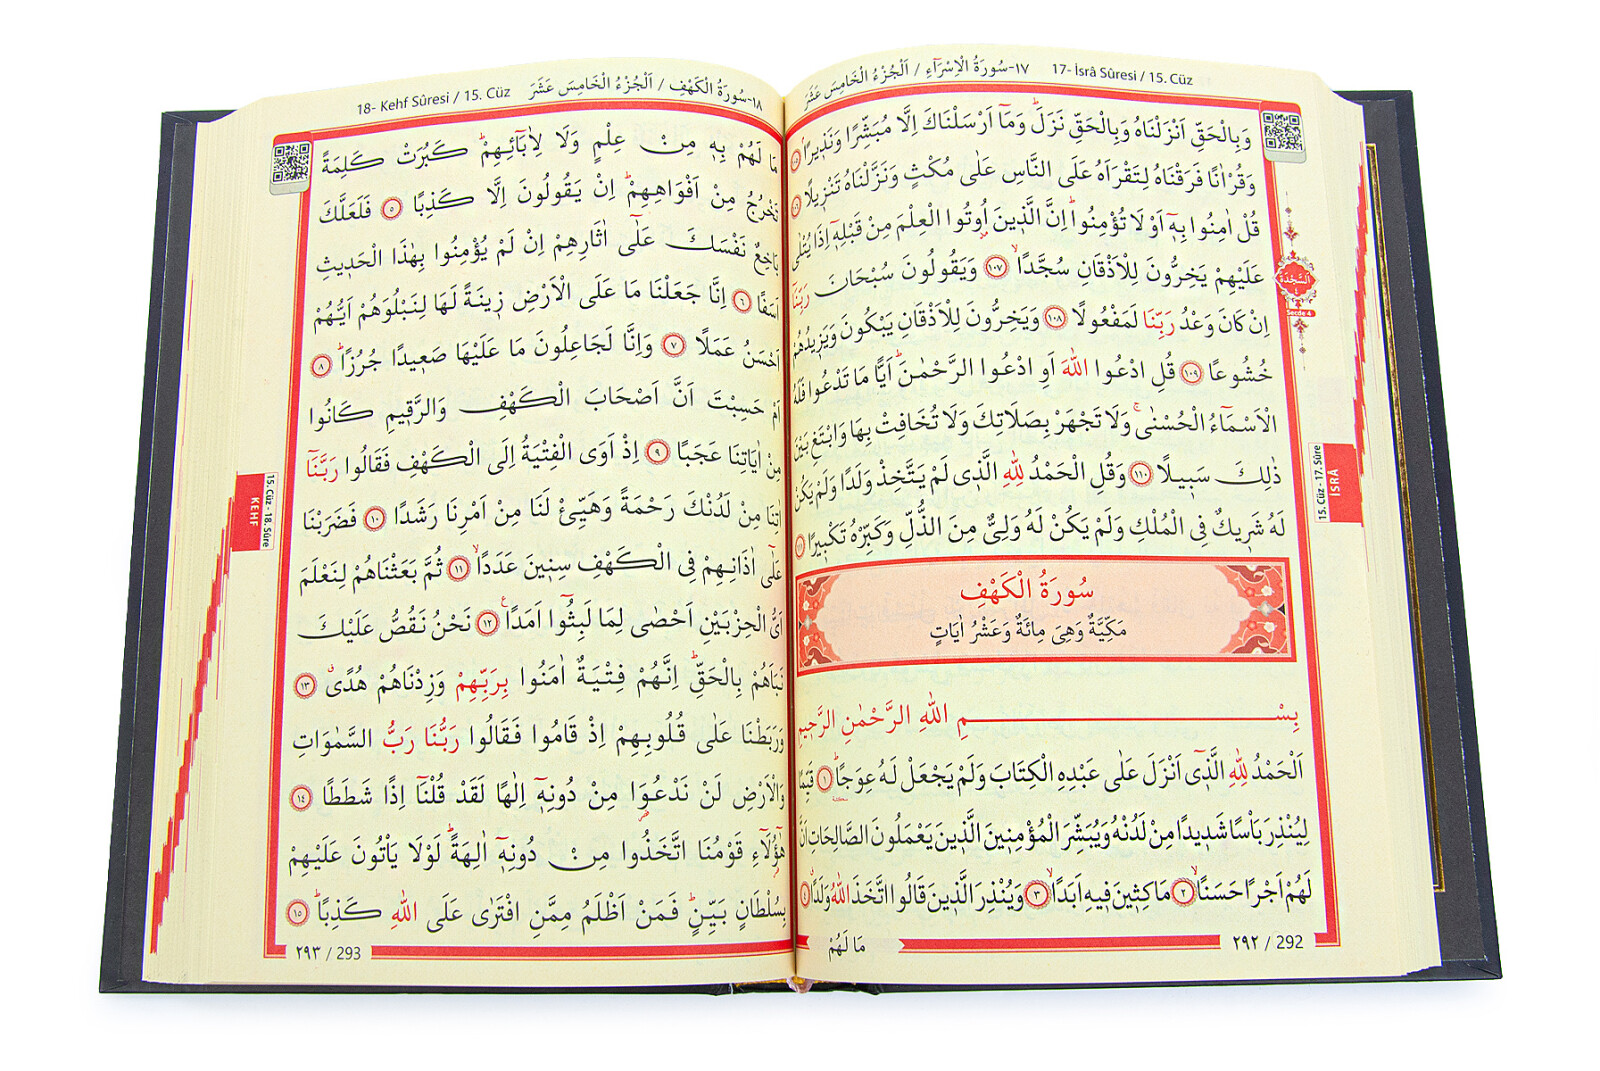 ١٧-سُورَةُ الْاِسْرَٓاءِ / اَلْجُزْءُ الْخَامِسَ عَشَرَ 17- İsrâ Sûresi / 15. Cüz
وَبِالْحَقِّ اَنْزَلْنَاهُ وَبِالْحَقِّ نَزَلَۜ وَمَٓا اَرْسَلْنَاكَ اِلَّا مُبَشِّرًا وَنَذ۪يرًاۢ
وَقُرْاٰنًا فَرَقْنَاهُ لِتَقْرَاَهُ عَلَى النَّاسِ عَلٰى مُكْثٍ وَنَزَّلْنَاهُ تَنْز۪يلًا
قُلْ اٰمِنُوا بِه۪ٓ اَوْ لَا تُؤْمِنُواۜ اِنَّ الَّذ۪ينَ اُوتُوا الْعِلْمَ مِنْ قَبْلِه۪ٓ اِذَا يُتْلٰى
عَلَيْهِمْ يَخِرُّونَ لِلْاَذْقَانِ سُجَّدًاۙ ١٠٧ وَيَقُولُونَ سُبْحَانَ رَبِّنَٓا
اِنْ كَانَ وَعْدُ رَبِّنَا لَمَفْعُولًا ١٠٨ وَيَخِرُّونَ لِلْاَذْقَانِ يَبْكُونَ وَيَز۪يدُهُمْ
خُشُوعًا ١٠٩ قُلِ ادْعُوا اللّٰهَ اَوِ ادْعُوا الرَّحْمٰنَۜ اَيًّا مَا تَدْعُوا فَلَهُ
الْاَسْمَٓاءُ الْحُسْنٰىۚ وَلَا تَجْهَرْ بِصَلَاتِكَ وَلَا تُخَافِتْ بِهَا وَابْتَغِ بَيْنَ
ذٰلِكَ سَب۪يلًا ١١٠ وَقُلِ الْحَمْدُ لِلّٰهِ الَّذ۪ي لَمْ يَتَّخِذْ وَلَدًا وَلَمْ يَكُنْ
لَهُ شَر۪يكٌ فِي الْمُلْكِ وَلَمْ يَكُنْ لَهُ وَلِيٌّ مِنَ الذُّلِّ وَكَبِّرْهُ تَكْب۪يرًا
سُورَةُ الْكَهْفِ
مَكِّيَّةٌ وَهِيَ مِائَةٌ وَعَشْرُ اٰيَاتٍ
بِسْمِ اللّٰهِ الرَّحْمٰنِ الرَّح۪يمِ
اَلْحَمْدُ لِلّٰهِ الَّذ۪ٓي اَنْزَلَ عَلٰى عَبْدِهِ الْكِتَابَ وَلَمْ يَجْعَلْ لَهُ عِوَجًاۜ ١ قَيِّمًا
لِيُنْذِرَ بَاْسًا شَد۪يدًا مِنْ لَدُنْهُ وَيُبَشِّرَ الْمُؤْمِن۪ينَ الَّذ۪ينَ يَعْمَلُونَ الصَّالِحَاتِ اَنَّ
لَهُمْ اَجْرًا حَسَنًاۙ ٢ مَاكِث۪ينَ ف۪يهِ اَبَدًاۙ ٣ وَيُنْذِرَ الَّذ۪ينَ قَالُوا اتَّخَذَ اللّٰهُ وَلَدًاۗ ٤
مَا لَهُمْ
٢٩٢ / 292
اَلسَّجْدَةُ
Secde 4
15. Cüz - 17. Sûre
İSRÂ
18- Kehf Sûresi / 15. Cüz ١٨-سُورَةُ الْكَهْفِ / اَلْجُزْءُ الْخَامِسَ عَشَرَ
مَا لَهُمْ بِه۪ مِنْ عِلْمٍ وَلَا لِاٰبَٓائِهِمْۜ كَبُرَتْ كَلِمَةً
تَخْرُجُ مِنْ اَفْوَاهِهِمْۜ اِنْ يَقُولُونَ اِلَّا كَذِبًا ٥ فَلَعَلَّكَ
بَاخِعٌ نَفْسَكَ عَلٰٓى اٰثَارِهِمْ اِنْ لَمْ يُؤْمِنُوا بِهٰذَا الْحَد۪يثِ
اَسَفًا ٦ اِنَّا جَعَلْنَا مَا عَلَى الْاَرْضِ ز۪ينَةً لَهَا لِنَبْلُوَهُمْ اَيُّهُمْ
اَحْسَنُ عَمَلًا ٧ وَاِنَّا لَجَاعِلُونَ مَا عَلَيْهَا صَع۪يدًا جُرُزًاۜ ٨
اَمْ حَسِبْتَ اَنَّ اَصْحَابَ الْكَهْفِ وَالرَّق۪يمِ كَانُوا
مِنْ اٰيَاتِنَا عَجَبًا ٩ اِذْ اَوَى الْفِتْيَةُ اِلَى الْكَهْفِ فَقَالُوا رَبَّنَٓا
اٰتِنَا مِنْ لَدُنْكَ رَحْمَةً وَهَيِّئْ لَنَا مِنْ اَمْرِنَا رَشَدًا ١٠ فَضَرَبْنَا
عَلٰٓى اٰذَانِهِمْ فِي الْكَهْفِ سِن۪ينَ عَدَدًاۙ ١١ ثُمَّ بَعَثْنَاهُمْ لِنَعْلَمَ
اَيُّ الْحِزْبَيْنِ اَحْصٰى لِمَا لَبِثُٓوا اَمَدًا۟ ١٢ نَحْنُ نَقُصُّ عَلَيْكَ
نَبَاَهُمْ بِالْحَقِّۜ اِنَّهُمْ فِتْيَةٌ اٰمَنُوا بِرَبِّهِمْ وَزِدْنَاهُمْ هُدًىۗ ١٣
وَرَبَطْنَا عَلٰى قُلُوبِهِمْ اِذْ قَامُوا فَقَالُوا رَبُّنَا رَبُّ السَّمٰوَاتِ
وَالْاَرْضِ لَنْ نَدْعُوَ۬ا مِنْ دُونِه۪ٓ اِلٰهًا لَقَدْ قُلْنَٓا اِذًا شَطَطًا ١٤
هٰٓؤُ۬لَٓاءِ قَوْمُنَا اتَّخَذُوا مِنْ دُونِه۪ٓ اٰلِهَةًۜ لَوْلَا يَاْتُونَ عَلَيْهِمْ
بِسُلْطَانٍ بَيِّنٍۜ فَمَنْ اَظْلَمُ مِمَّنِ افْتَرٰى عَلَى اللّٰهِ كَذِبًاۜ ١٥
٢٩٣ / 293
15. Cüz - 18. Sûre
KEHF